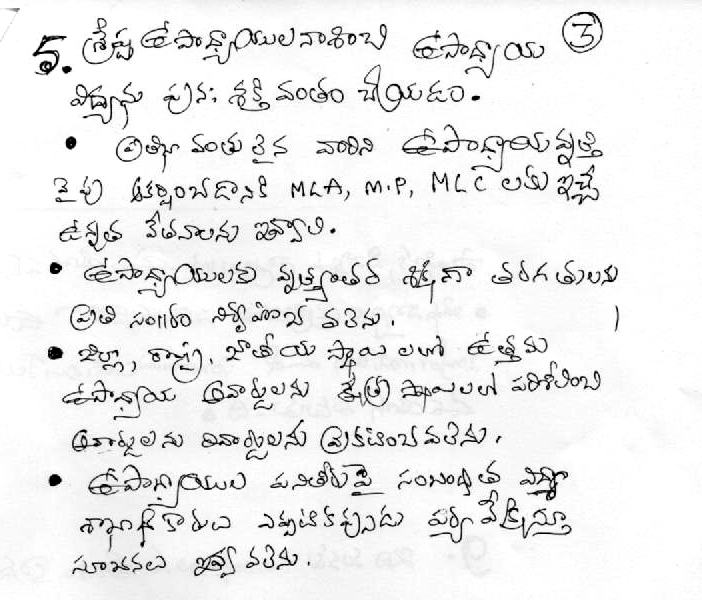 5. శ్రేష్ఠ ఉపాధ్యాయులనాశించి ఉపాధ్యాయ ③
విద్యను పునః శక్తివంతం చేయడం.
• ప్రతిభావంతులైన వారిని ఉపాధ్యాయవృత్తి
వైపు ఆకర్షించడానికి MLA, M.P, MLC లకు ఇచ్చే
ఉన్నత వేతనాలను ఇవ్వాలి.
• ఉపాధ్యాయులకు వృత్త్యంతర శిక్షణా తరగతులను
ప్రతి సం॥రం నిర్వహించ వలెను.
• జిల్లా, రాష్ట్ర, జాతీయ స్థాయిలలో ఉత్తమ
ఉపాధ్యాయ అవార్డులను క్షేత్ర స్థాయిలలో పరిశీలించి
అవార్డులను రివార్డులను ప్రకటించవలెను.
• ఉపాధ్యాయుల పనితీరుపై సంబంధిత విద్యా
శాఖాధికారులు ఎప్పటికప్పుడు పర్యవేక్షిస్తూ
సూచనలు ఇవ్వవలెను.